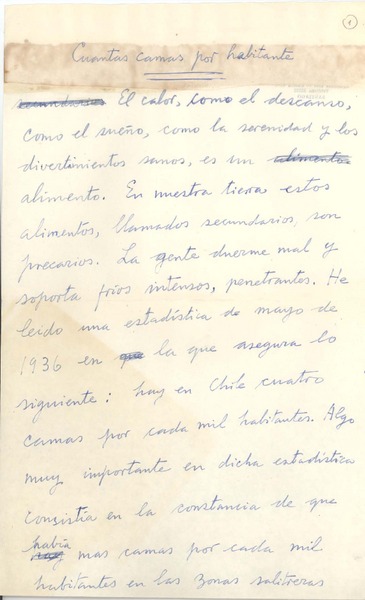 1
Cuantas camas por habitante
secundarios El calor, como el descanso,
como el sueño, como la serenidad y los
divertimientos sanos, es un alimento
alimento. En nuestra tierra estos
alimentos, llamados secundarios, son
precarios. La gente duerme mal y
soporta fríos intensos, penetrantes. He
leído una estadística de mayo de
1936 en que la que asegura lo
siguiente: hay en Chile cuatro
camas por cada mil habitantes. Algo
muy importante en dicha estadística
consistía en la constancia de que
había
hay mas camas por cada mil
habitantes en las zonas salitreras